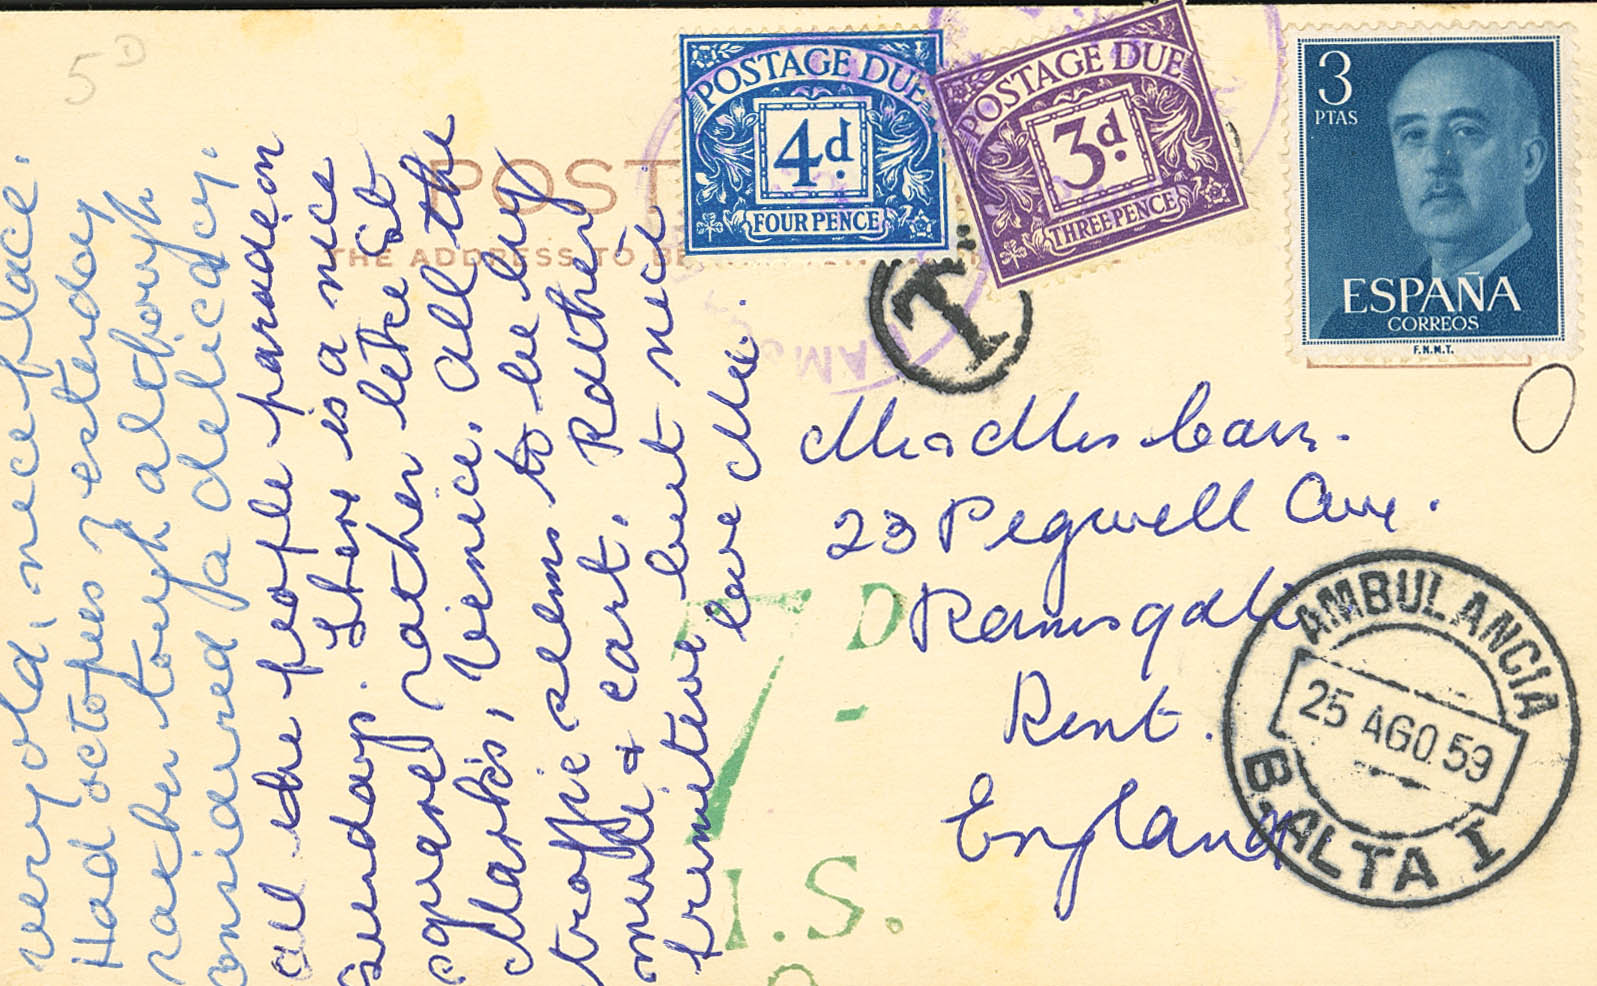 5D
POST
THE ADDRESS TO BE
POSTAGE DUE
4d.
FOUR PENCE
POSTAGE DUE
3d.
THREE PENCE
3
PTAS
ESPAÑA
CORREOS
F.N.M.T.
T
very old, nice place.
Had octopus yesterday
rather tough although
considered a delicacy.
all the people parade on
Sunday. There is a nice
square rather like St
Mark's, Venice. All the
traffic seems to be by
mule & cart. Rather
primitive but nice
love Mie.
Mr & Mrs Carr.
23 Pegwell Ave.
Ramsgate
Kent.
England
7D
I.S.
AMBULANCIA
25 AGO. 59
B. ALTA I